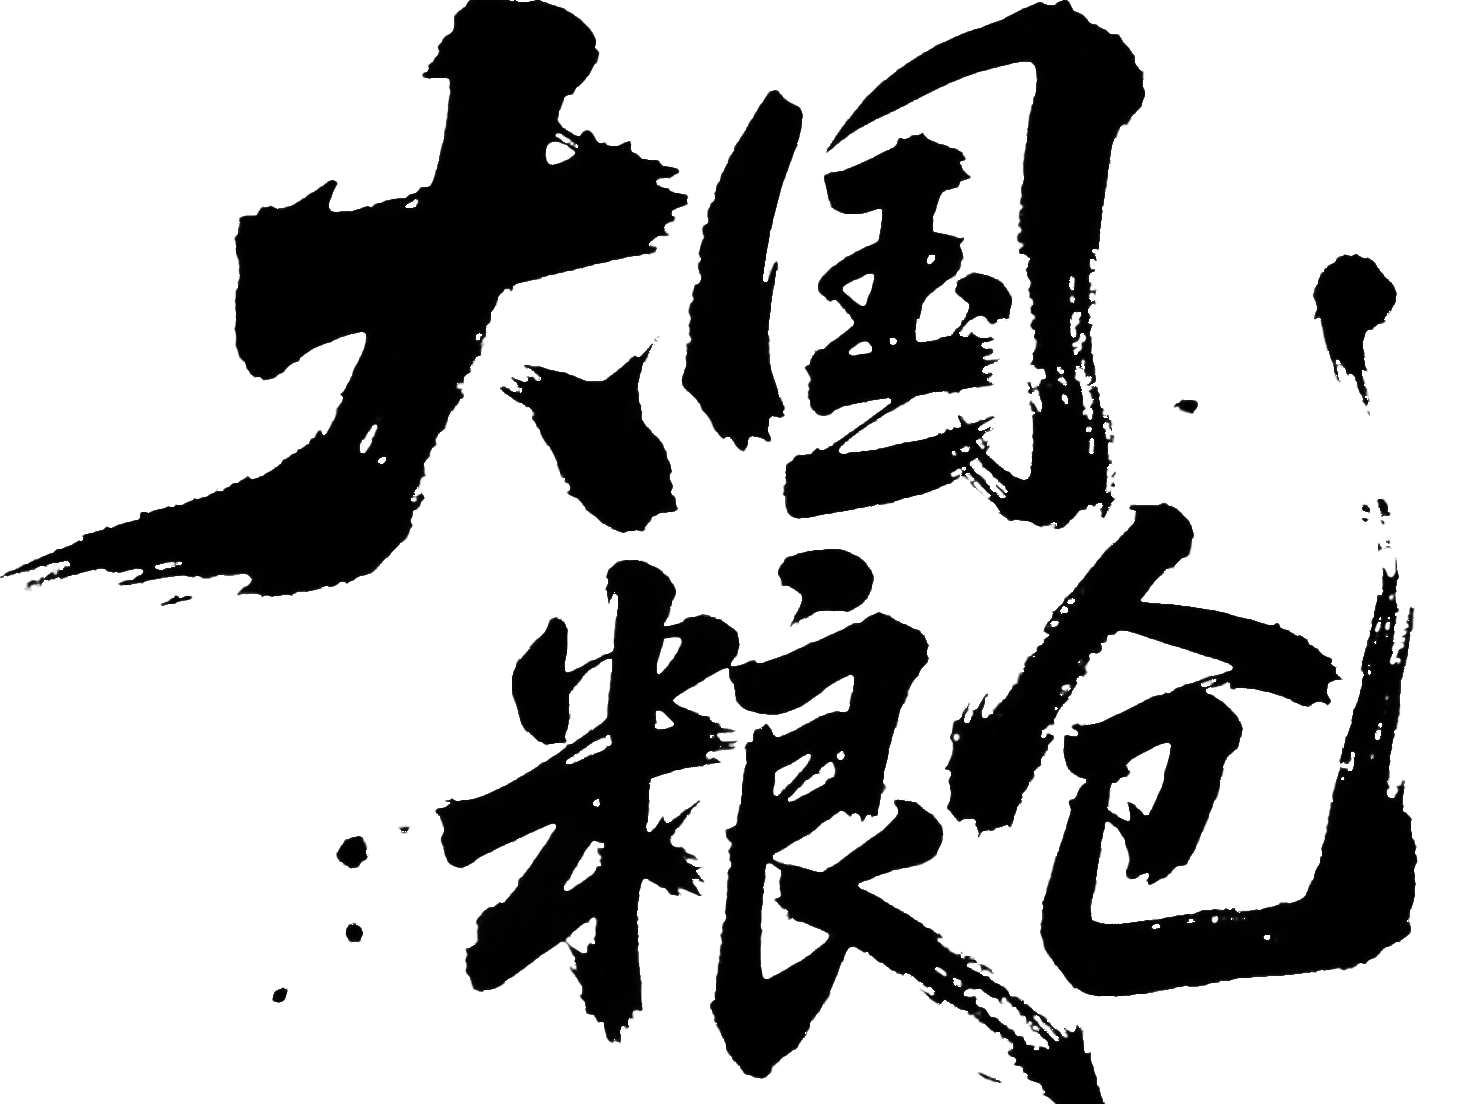 大国
粮仓